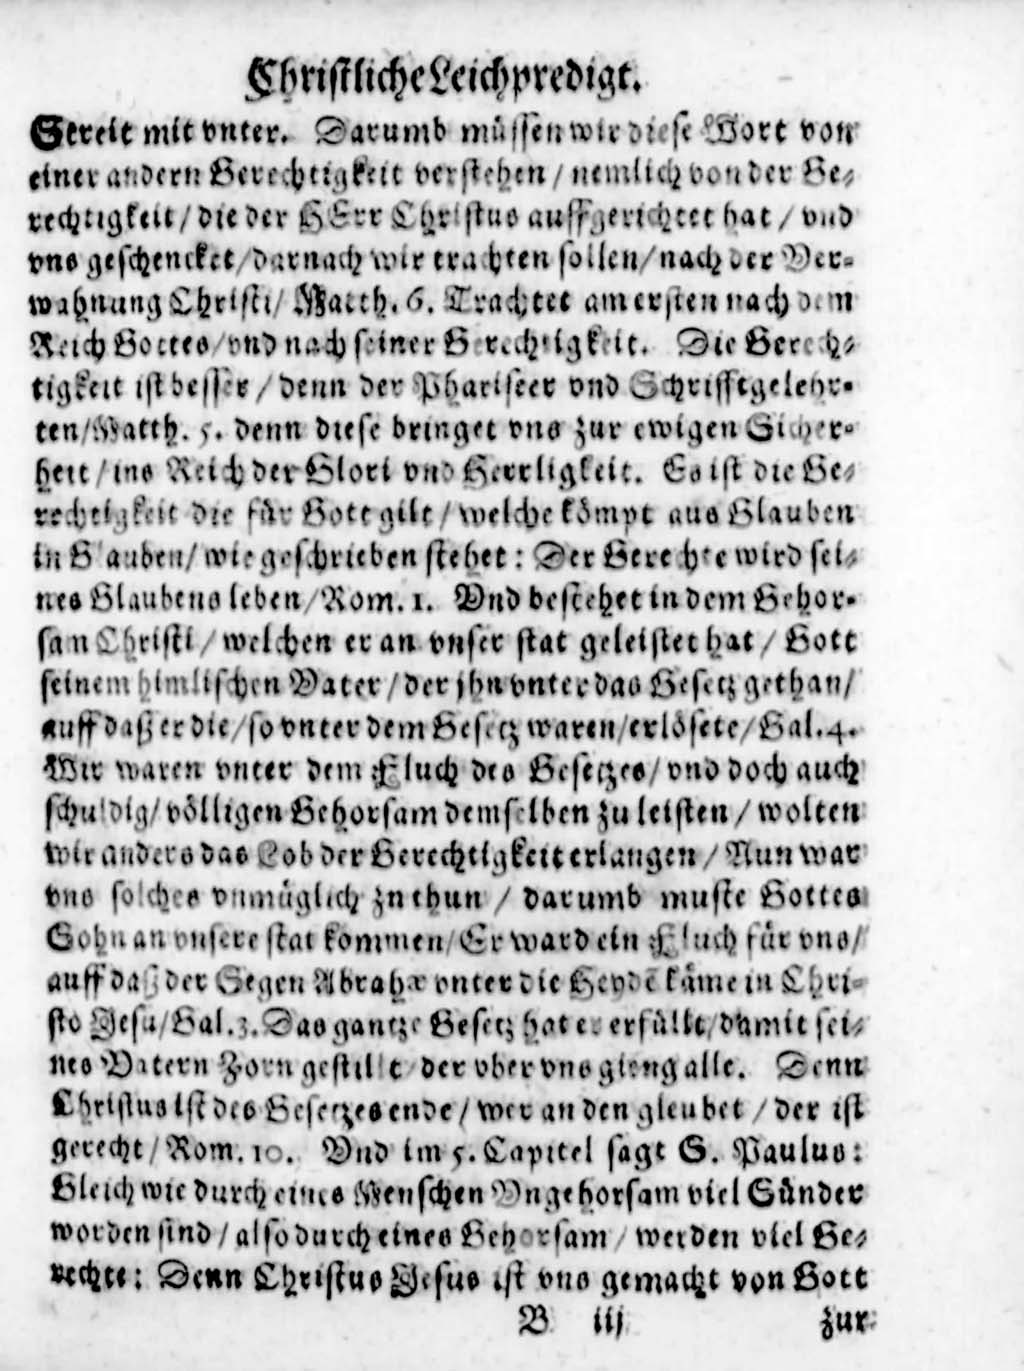 Christliche Leichpredigt.
Streit mit vnter. Darumb müssen wir diese Wort von
einer andern Gerechtigkeit verstehen / nemlich von der Ge-
rechtigkeit / die der HErr Christus auffgerichtet hat / vnd
vns geschencket / darnach wir trachten sollen / nach der Ver-
mahnung Christi / Matth. 6. Trachtet am ersten nach dem
Reich Gottes / vnd nach seiner Gerechtigkeit. Die Gerech-
tigkeit ist besser / denn der Phariseer vnd Schrifftgelehr-
ten / Matth. 5. denn diese bringet vns zur ewigen Sicher-
heit / ins Reich der Glori vnd Herrligkeit. Es ist die Ge-
rechtigkeit die für Gott gilt / welche kömpt aus Glauben
in Glauben / wie geschrieben stehet: Der Gerechte wird sei-
nes Glaubens leben / Rom. 1. Vnd bestehet in dem Gehor-
sam Christi / welchen er an vnser stat geleistet hat / Gott
seinem himlischen Vater / der jhn vnter das Gesetz gethan /
auff daß er die / so vnter dem Gesetz waren / erlösete / Gal. 4.
Wir waren vnter dem Fluch des Gesetzes / vnd doch auch
schuldig / völligen Gehorsam demselben zu leisten / wolten
wir anders das Lob der Gerechtigkeit erlangen / Nun war
vns solches vnmüglich zu thun / darumb muste Gottes
Sohn an vnsere stat kommen / Er ward ein Fluch für vns /
auff daß der Segen Abrahæ vnter die Heydē käme in Chri-
sto Jesu / Gal. 3. Das gantze Gesetz hat er erfüllt / damit sei-
nes Vatern Zorn gestillt / der vber vns gieng alle. Denn
Christus ist des Gesetzes ende / wer an den gleubet / der ist
gerecht / Rom. 10. Vnd im 5. Capitel sagt S. Paulus:
Gleich wie durch eines Menschen Vngehorsam viel Sünder
worden sind / also durch eines Gehorsam / werden viel Ge-
rechte: Denn Christus Jesus ist vns gemacht von Gott
B iij zur